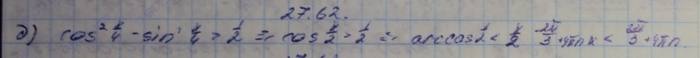 27.62.
д) cos² x/4 - sin² x/4 > 1/2 = cos x/2 > 1/2 = arccos 1/2 < x/2 2π/3 + 4πn x < 2π/3 + 4πn.